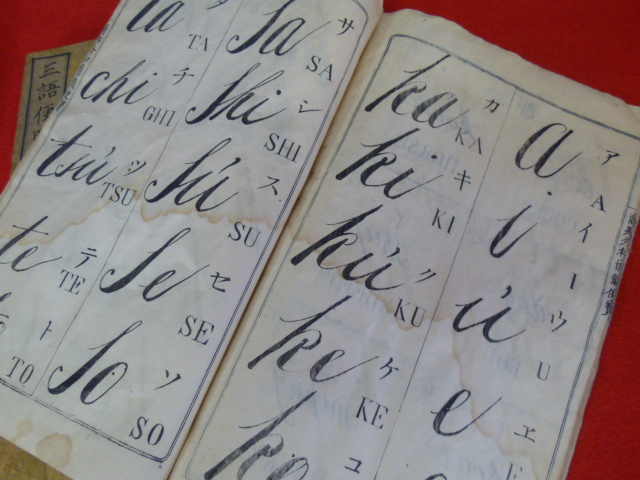 a ア A
i イ I
ú ウ U
e ヱ E
ka カ KA
ki キ KI
kú ク KU
ke ケ KE
ko コ
sa サ SA
shi シ SHI
sú ス SU
se セ SE
so ソ SO
ta タ TA
chi チ GHI
tsú ツ TSU
te テ TE
ト TO
三語便